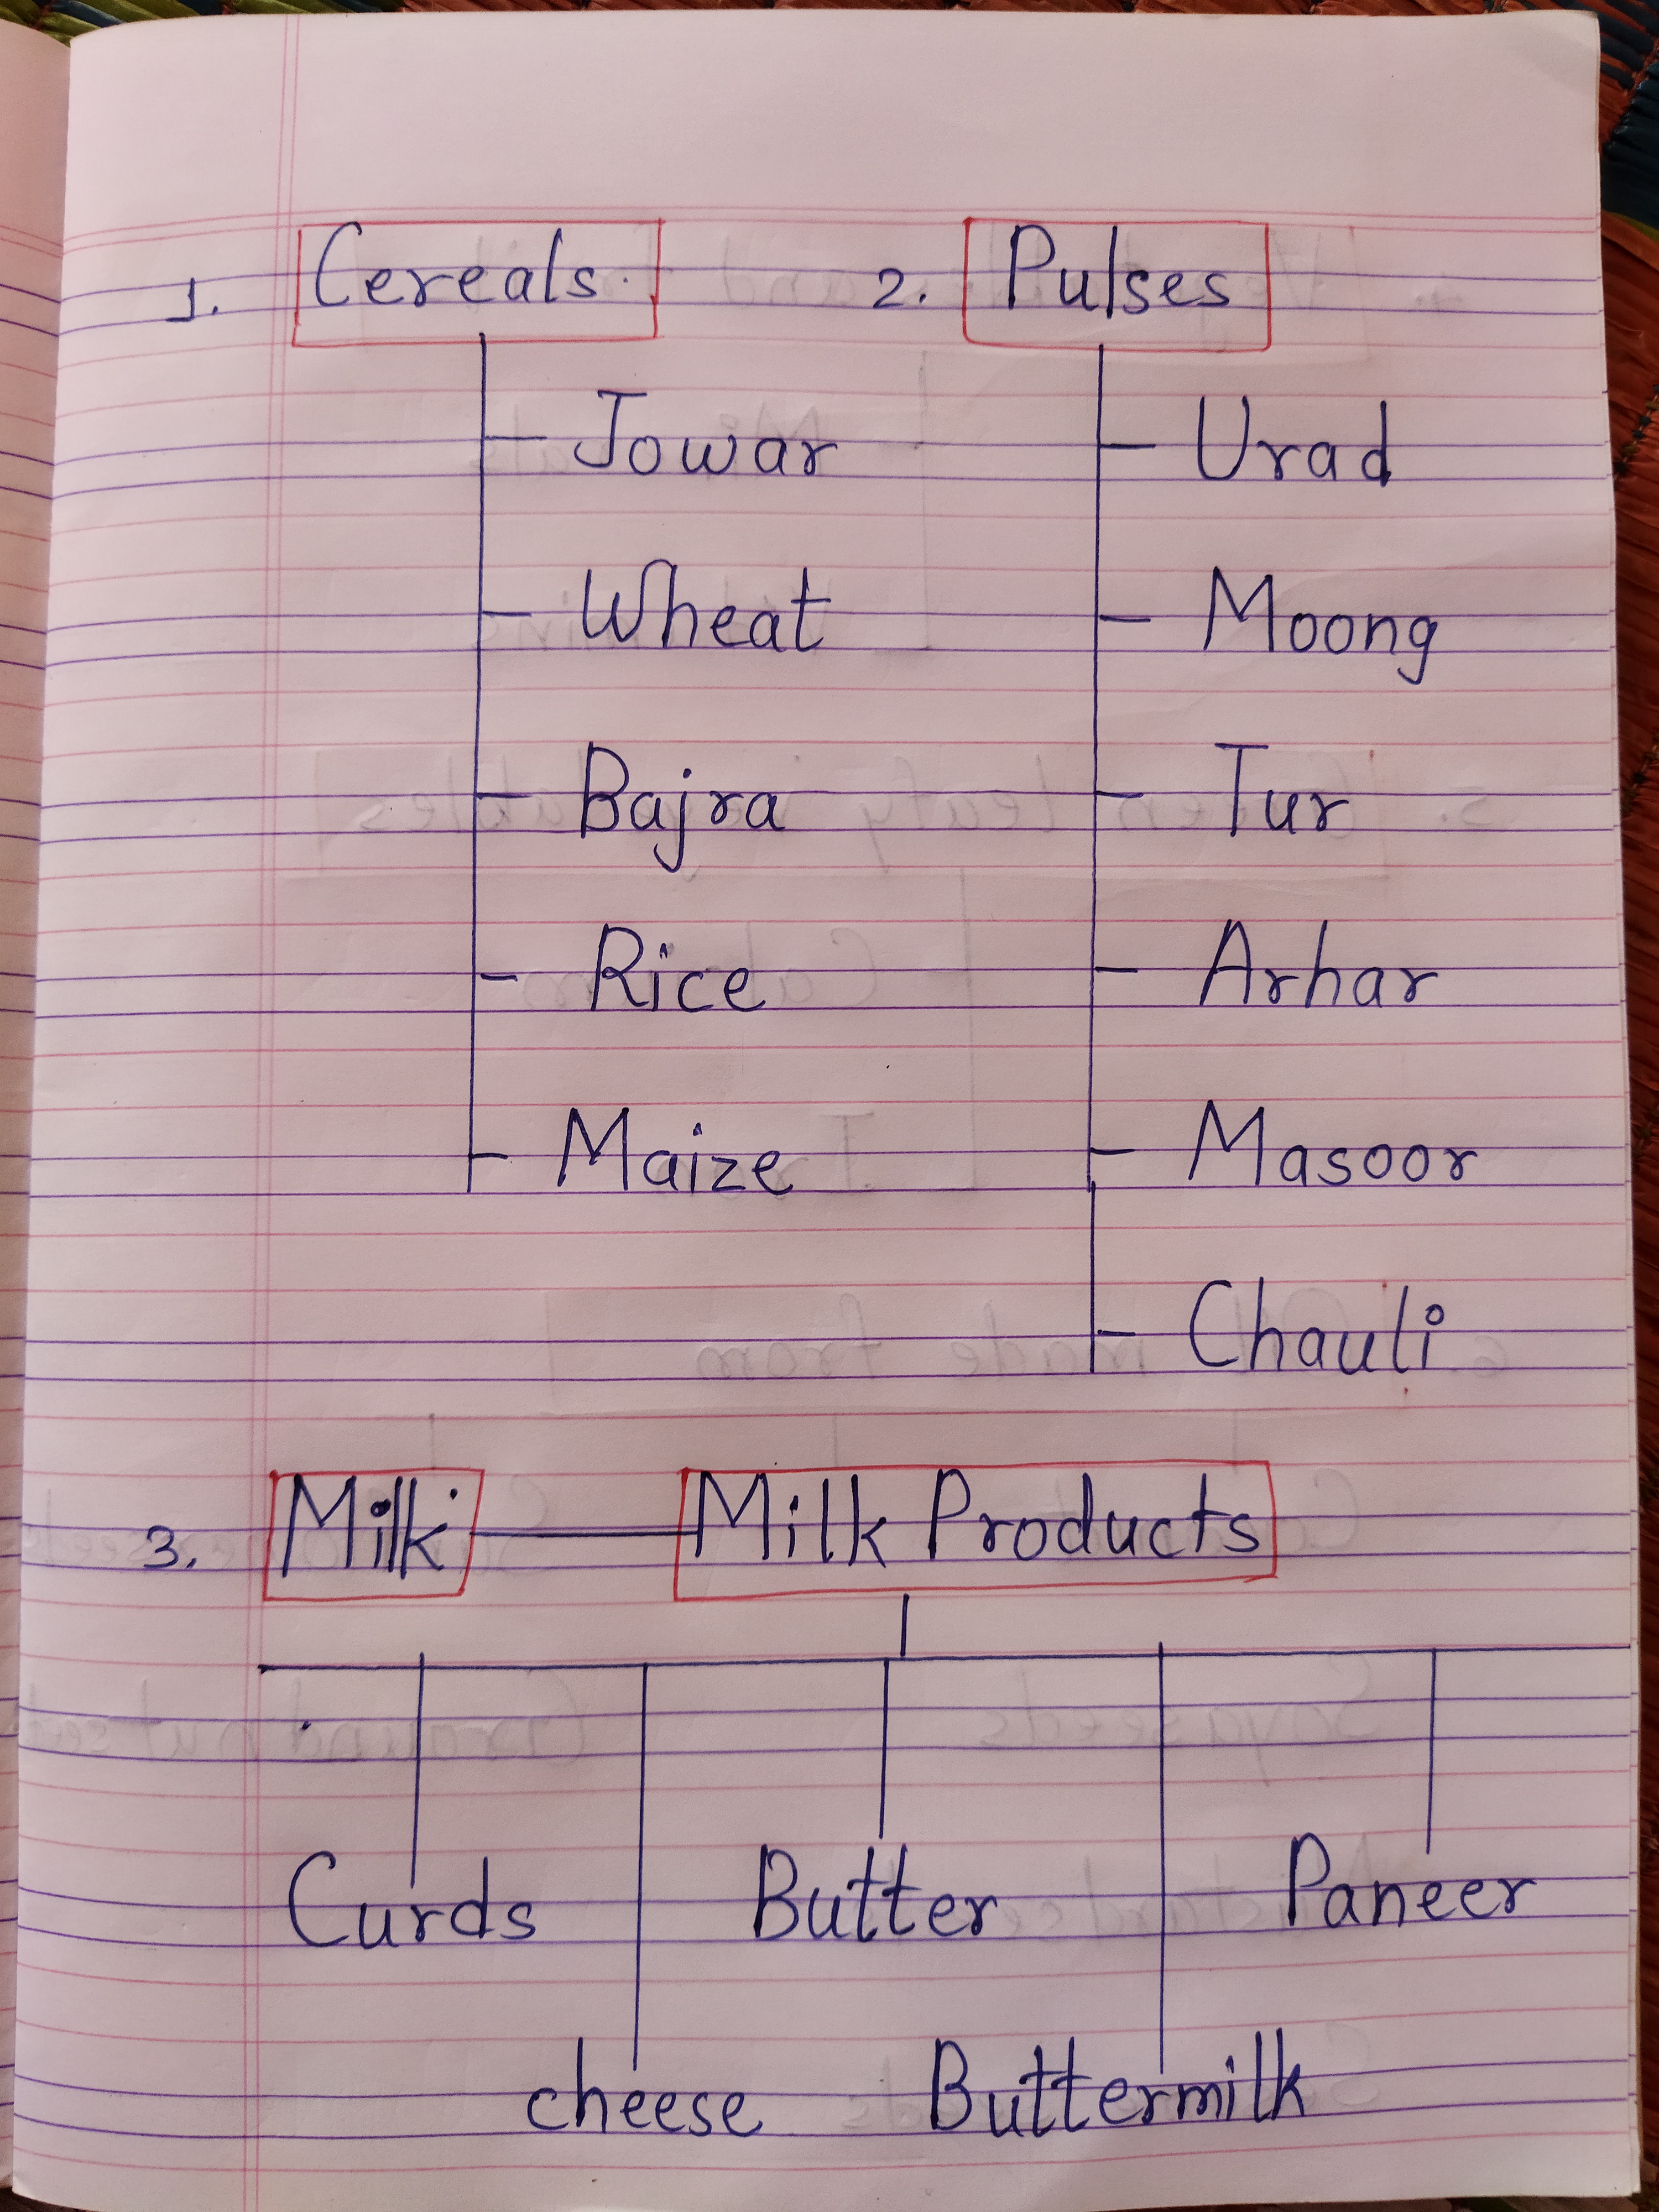 1. Cereals.
Jowar
Wheat
Bajra
Rice
Maize
2. Pulses
Urad
Moong
Tur
Arhar
Masoor
Chauli
3. Milk Milk Products
Curds
cheese
Butter
Buttermilk
Paneer